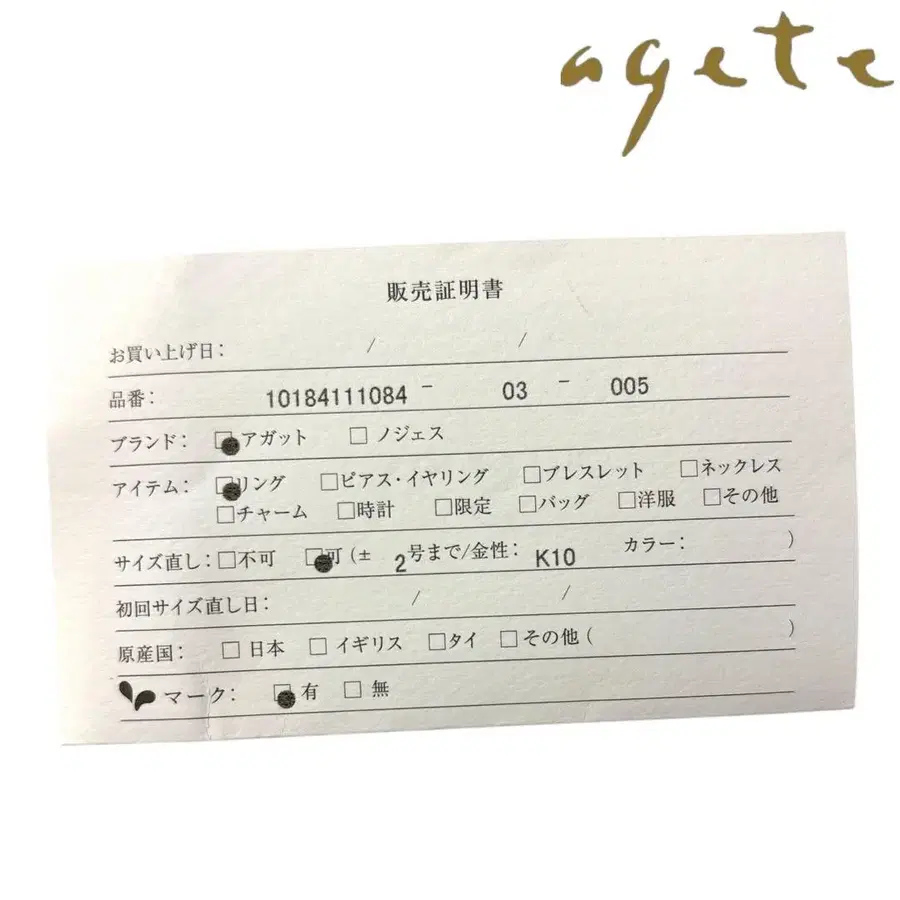 agete
販売証明書
お買い上げ日: / /
品番: 10184111084 - 03 - 005
ブランド: □アガット □ノジェス
アイテム: □リング □ピアス・イヤリング □ブレスレット □ネックレス
□チャーム □時計 □限定 □バッグ □洋服 □その他
サイズ直し: □不可 □可 (± 2号まで/金性: K10 カラー: )
初回サイズ直し日: / /
原産国: □日本 □イギリス □タイ □その他 ( )
マーク: □有 □無